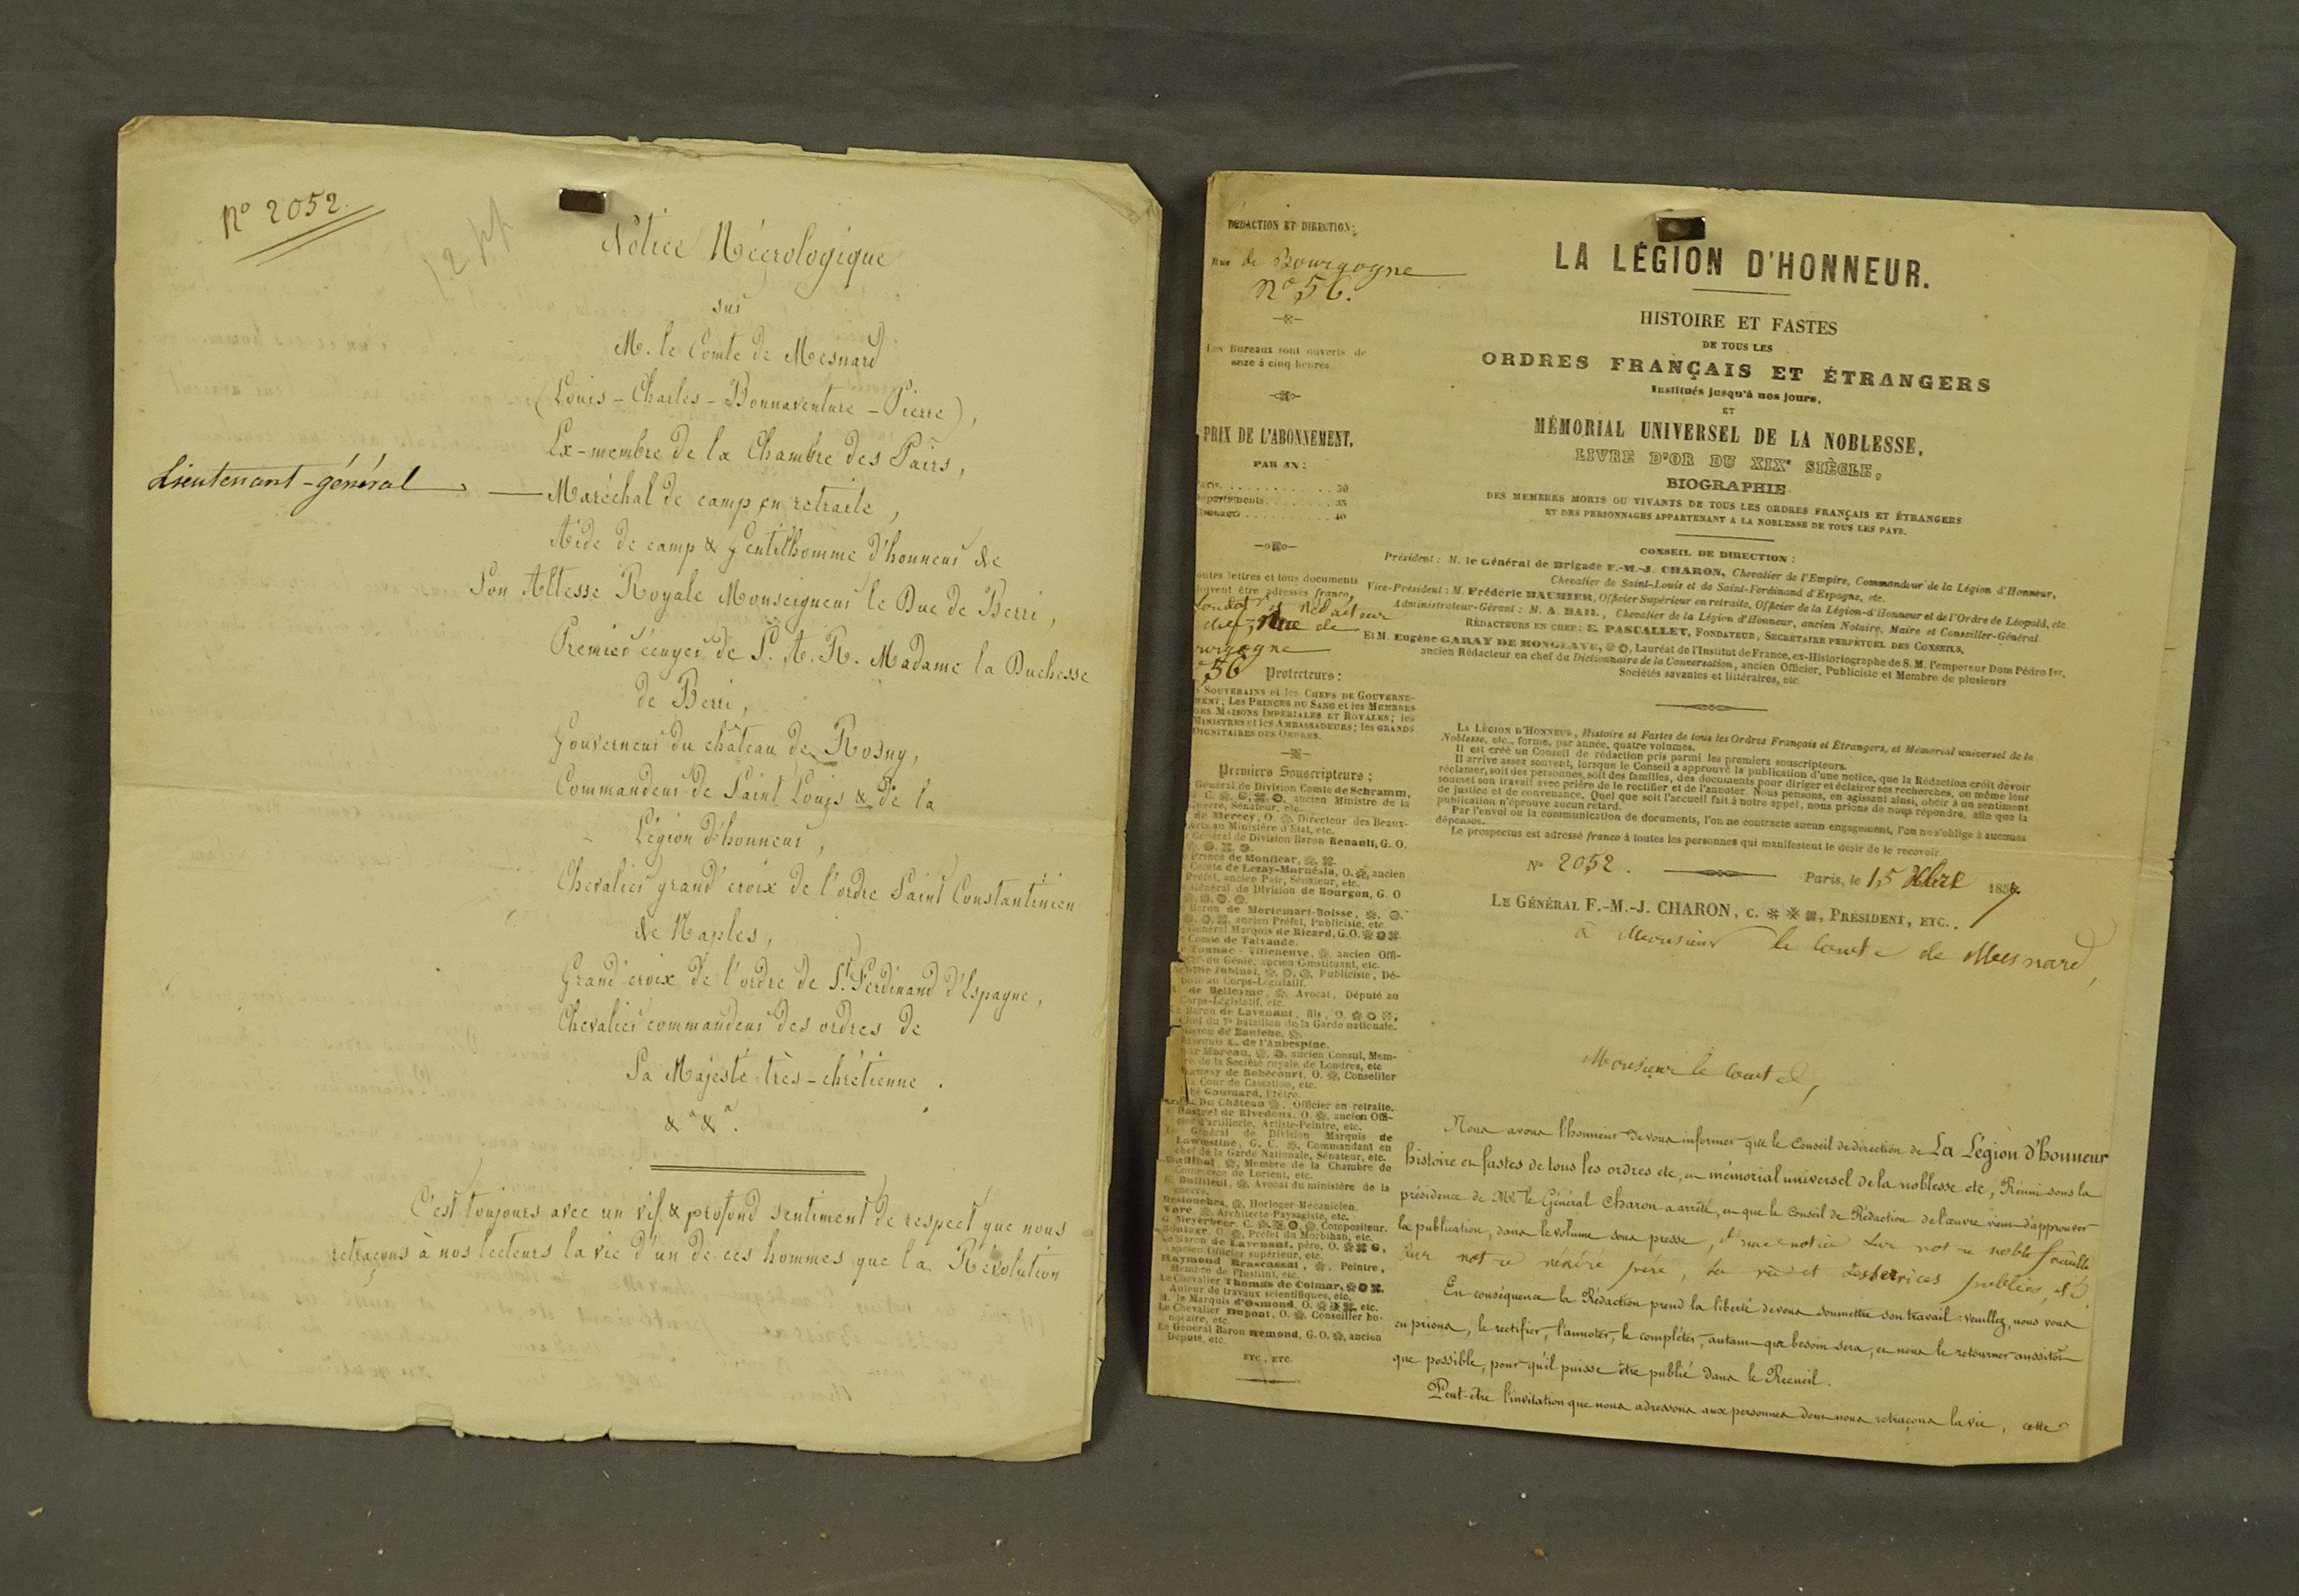 Nº 2052.
Notice Nécrologique
sur
M. le Comte de Mesnard
(Louis-Charles-Bonnaventure-Pierre),
Ex-membre de la Chambre des Pairs,
Lieutenant-général
Maréchal de camp en retraite,
Aide de camp & gentilhomme d'honneur de
Son Altesse Royale Monseigneur le Duc de Berri,
Premier écuyer de S. A. R. Madame la Duchesse
de Berri,
Gouverneur du château de Rosny,
Commandeur de Saint Louis & de la
Légion d'honneur,
Chevalier grand'croix de l'ordre Saint Constantinien
de Naples,
Grand'croix de l'ordre de St. Ferdinand d'Espagne,
Chevalier commandeur des ordres de
Sa Majesté très-chrétienne.
&a &a.
C'est toujours avec un vif & profond sentiment de respect que nous
retraçons à nos lecteurs la vie d'un de ces hommes que la Révolution
RÉDACTION ET DIRECTION:
Rue de Bourgogne
nº 56.
Les Bureaux sont ouverts de
onze à cinq heures.
PRIX DE L'ABONNEMENT.
PAR AN:
Paris. . . . . . . . . . . 30
Départements. . . . . . . 35
. . . . . . . . 40
toutes lettres et tous documents
doivent être adressés franco,
rédacteur
chef, Rue de
56
Protecteurs:
SOUVERAINS et les CHEFS DE GOUVERNE-
MENT, LES PRINCES DU SANG et les MEMBRES
DES MAISONS IMPÉRIALES ET ROYALES; les
MINISTRES et les AMBASSADEURS; les GRANDS
DIGNITAIRES DES ORDRES.
Premiers Souscripteurs:
Général de Division Comte de Schramm,
ancien Ministre de la
Guerre, Sénateur, etc.
de Mercey, O. Directeur des Beaux-
Arts au Ministère d'État, etc.
Général de Division Baron Renault, G. O.
Prince de Montléar,
Comte de Lezay-Marnésia, O. ancien
Préfet, ancien Pair, Sénateur, etc.
Général de Division de Bourgon, G. O
Baron de Mortemart-Boisse,
ancien Préfet, Publiciste, etc.
Général Marquis de Ricard, G.O.
Comte de Talvande.
Tonnac-Villeneuve, ancien Offi-
du Génie, ancien Constituant, etc.
Achille Jubinal, Publiciste, Dé-
puté au Corps-Législatif.
de Belleyme, Avocat, Député au
Corps-Législatif, etc.
Baron de Lavenant, fils, O.
Chef du 7e bataillon de la Garde nationale.
Marquis X. de l'Aubespine.
Moreau, ancien Consul, Mem-
bre de la Société royale de Londres, etc
de Bobécourt, O. Conseiller
la Cour de Cassation, etc.
Goumard, Prêtre.
Du Château, Officier en retraite.
de Rivedoux, O. ancien Offi-
cier d'artillerie, Artiste-Peintre, etc.
Général de Division Marquis de
Lawœstine, G. C. Commandant en
chef de la Garde Nationale, Sénateur, etc.
Membre de la Chambre de
Commerce de Lorient, etc.
Avocat du ministère de la
guerre.
Destouches, Horloger-Mécanicien.
Varé, Architecte-Paysagiste, etc.
G. Meyerbeer, C. Compositeur.
O. Préfet du Morbihan, etc.
Le Baron de Lavenant, père, O.
ancien Officier supérieur, etc.
Raymond Brascassat, Peintre,
Membre de l'Institut, etc.
Le Chevalier Thomas de Colmar,
Auteur de travaux scientifiques, etc.
M. le Marquis d'Osmond, O. etc.
Le Chevalier Dupont, O. Conseiller ho-
noraire, etc.
Le Général Baron Rémond, G. O. ancien
Député, etc.
ETC., ETC.
LA LÉGION D'HONNEUR.
HISTOIRE ET FASTES
DE TOUS LES
ORDRES FRANÇAIS ET ÉTRANGERS
Institués jusqu'à nos jours,
ET
MÉMORIAL UNIVERSEL DE LA NOBLESSE,
LIVRE D'OR DU XIXe SIÈCLE,
BIOGRAPHIE
DES MEMBRES MORTS OU VIVANTS DE TOUS LES ORDRES FRANÇAIS ET ÉTRANGERS
ET DES PERSONNAGES APPARTENANT A LA NOBLESSE DE TOUS LES PAYS.
CONSEIL DE DIRECTION:
Président: M. le Général de Brigade F.-M.-J. CHARON, Chevalier de l'Empire, Commandeur de la Légion d'Honneur,
Chevalier de Saint-Louis et de Saint-Ferdinand d'Espagne, etc.
Vice-Président: M. Frédéric DAUMIER, Officier Supérieur en retraite, Officier de la Légion-d'Honneur et de l'Ordre de Léopold, etc
Administrateur-Gérant: M. A. BAIL, Chevalier de la Légion d'Honneur, ancien Notaire, Maire et Conseiller-Général
RÉDACTEURS EN CHEF: E. PASCALLET, FONDATEUR, SECRÉTAIRE PERPÉTUEL DES CONSEILS,
Et M. Eugène GARAY DE MONGLAVE, Lauréat de l'Institut de France, ex-Historiographe de S. M. l'empereur Dom Pédro Ier,
ancien Rédacteur en chef du Dictionnaire de la Conversation, ancien Officier, Publiciste et Membre de plusieurs
Sociétés savantes et littéraires, etc.
LA LÉGION D'HONNEUR, Histoire et Fastes de tous les Ordres Français et Étrangers, et Mémorial universel de la
Noblesse, etc., forme, par année, quatre volumes.
Il est créé un Conseil de rédaction pris parmi les premiers souscripteurs.
Il arrive assez souvent, lorsque le Conseil a approuvé la publication d'une notice, que la Rédaction croit devoir
réclamer, soit des personnes, soit des familles, des documents pour diriger et éclairer ses recherches, ou même leur
soumet son travail avec prière de le rectifier et de l'annoter. Nous pensons, en agissant ainsi, obéir à un sentiment
de justice et de convenance. Quel que soit l'accueil fait à notre appel, nous prions de nous répondre, afin que la
publication n'éprouve aucun retard.
Par l'envoi ou la communication de documents, l'on ne contracte aucun engagement, l'on ne s'oblige à aucunes
dépenses.
Le prospectus est adressé franco à toutes les personnes qui manifestent le désir de le recevoir.
No 2052. Paris, le 15 Xbre 1857
LE GÉNÉRAL F.-M.-J. CHARON, C. PRÉSIDENT, ETC.
à Monsieur le comte de Mesnard,
Monsieur le comte,
Nous avons l'honneur de vous informer que le Conseil de direction de La Légion d'honneur
histoire et fastes de tous les ordres etc, et mémorial universel de la noblesse etc, Réuni sous la
présidence de Mr le Général Charon a arrêté, et que le Conseil de Rédaction de l'œuvre vient d'approuver
la publication, dans le volume sous presse, d'une notice sur votre noble famille
sur votre vénéré père, sa vie et ses services publics, etc.
En conséquence la Rédaction prend la liberté de vous soumettre son travail: veuillez, nous vous
en prions, le rectifier, l'annoter, le compléter, autant que besoin sera, et nous le retourner aussitôt
que possible, pour qu'il puisse être publié dans le Recueil.
Peut-être l'invitation que nous adressons aux personnes dont nous retraçons la vie, cette